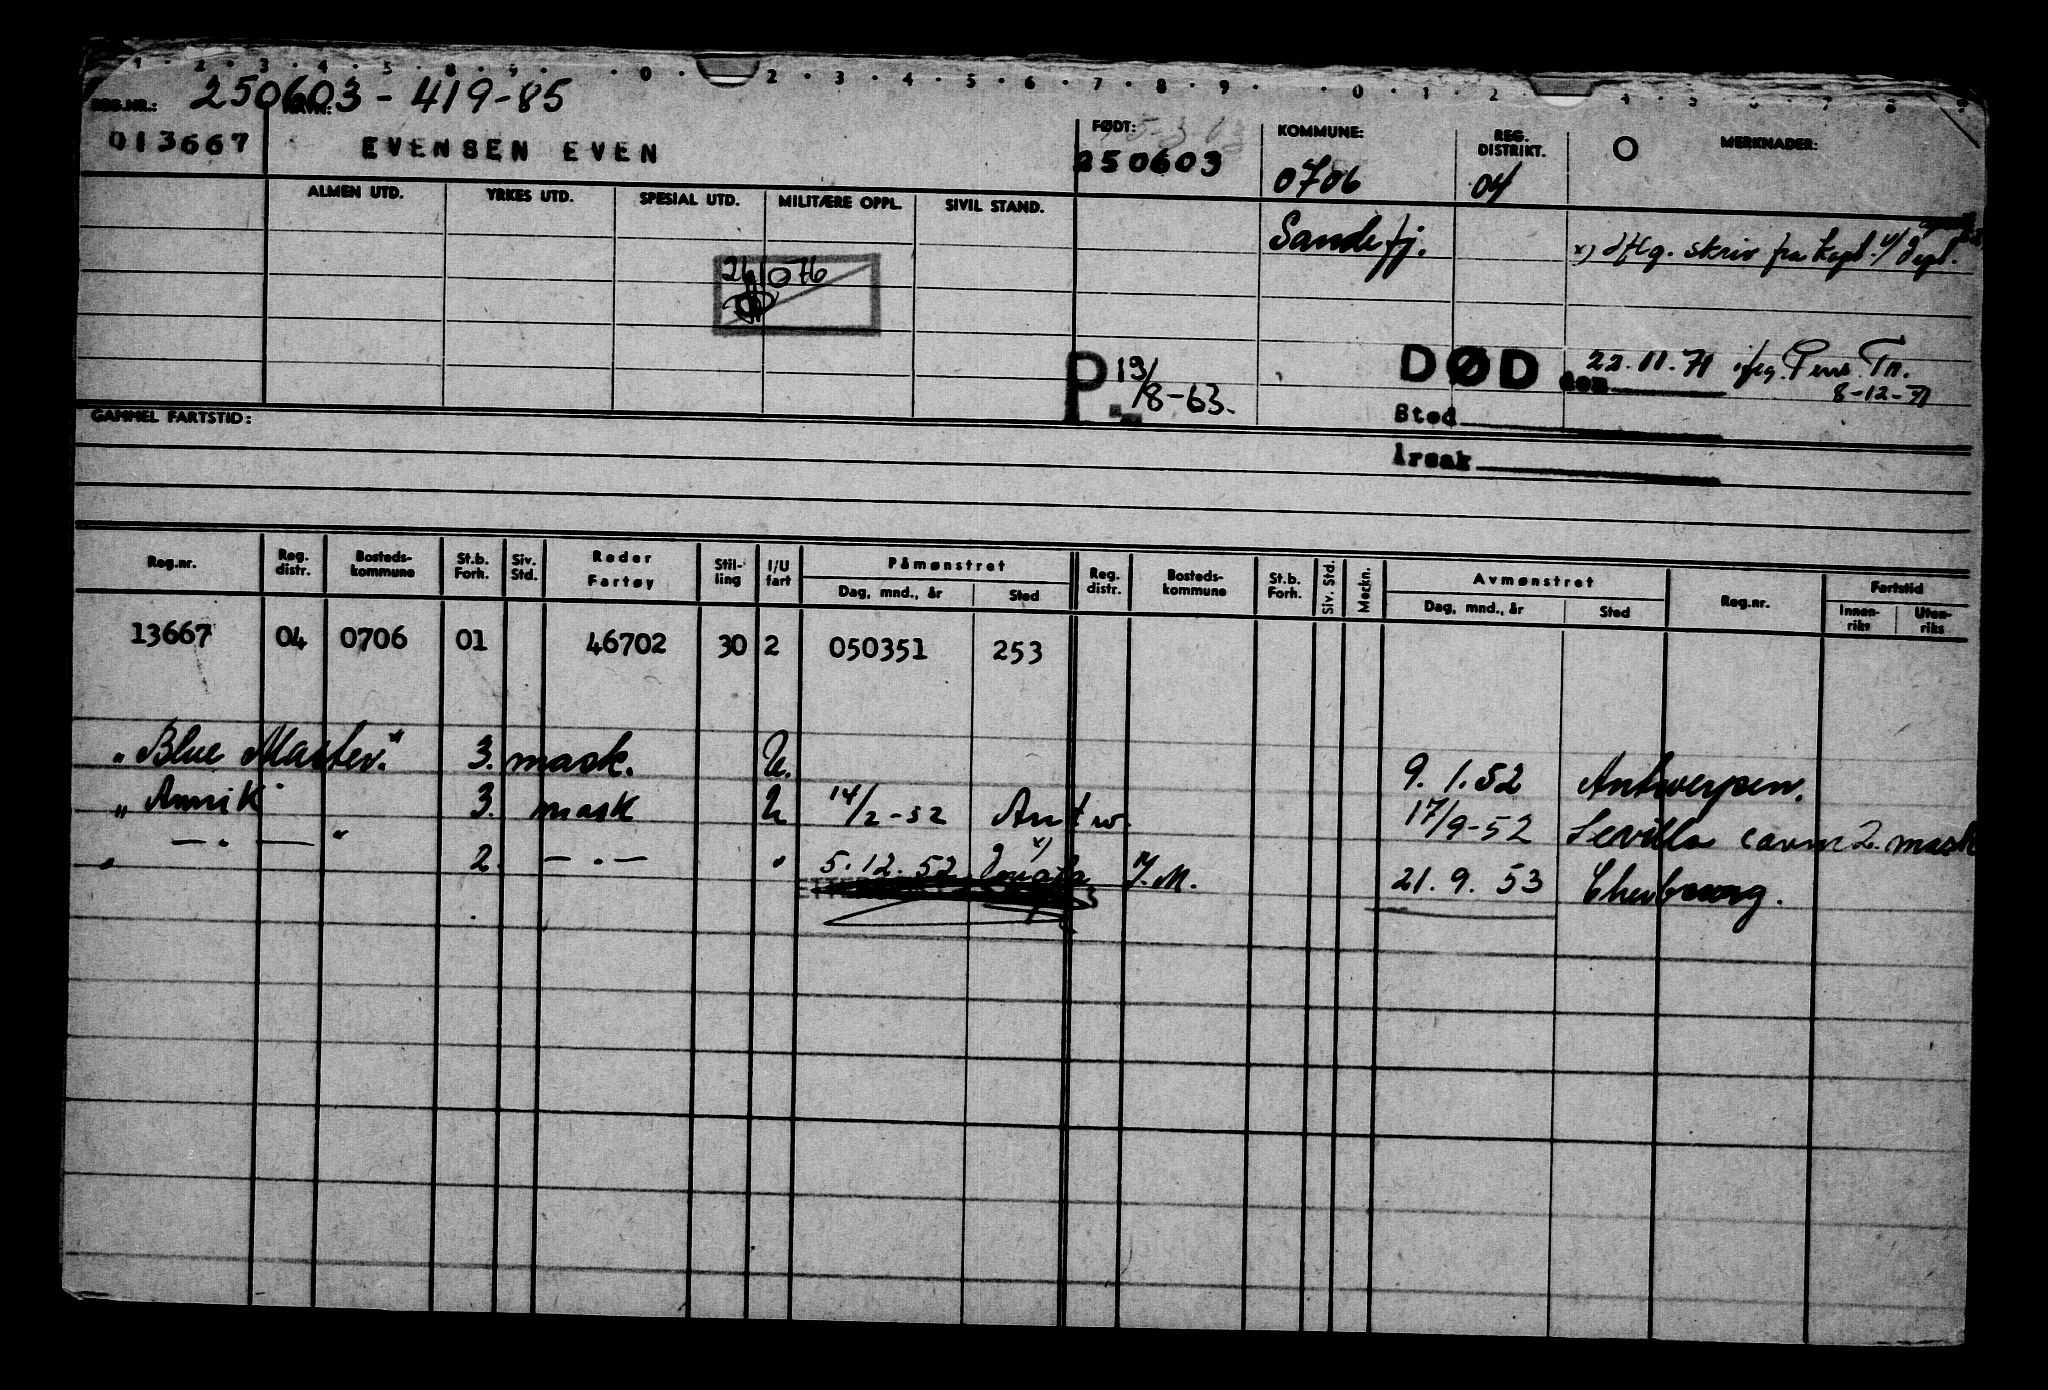 1 . 2 . 3 . 4 . 5 . 8 . 9 . . 0 . 2 . 3 . 4 . 5 . 6 . 7 . 8 . 9 . 0 . 1 . 2 4 . 5 7 8 9
250603 - 419-85
REG.NR.: NAVN: FØDT: KOMMUNE: REG. DISTRIKT. O MERKNADER:
013667 EVENSEN EVEN 250603 0706 04
ALMEN UTD. YRKES UTD. SPESIAL UTD. MILITÆRE OPPL. SIVIL STAND.
Sandefj. x) iflg. skriv fra
076
P 19/8-63. DØD den 22.11.71 iflg. Pens. Tr.
8-12-71
GAMMEL FARTSTID: Sted
Årsak
Reg.nr. Reg. distr. Bosteds-kommune St.b. Forh. Siv. Std. Reder Fartøy Stil-ling I/U fart Påmønstret Reg. distr. Bosteds-kommune St.b. Forh. Siv. Std. Merkn. Avmønstret Reg.nr. Fartstid
Dag, mnd., år Sted Dag, mnd., år Sted Innen-riks Uten-riks
13667 04 0706 01 46702 30 2 050351 253
"Blue Master." 3. mask. U. 9. 1.52 Antwerpen.
"Annik" 3. mask U 14/2-52 Antw. 17/9-52 Sevilla 2. mask
" — . — " 2. — . — " 5.12.52 x) 21. 9. 53 Cherbourg.